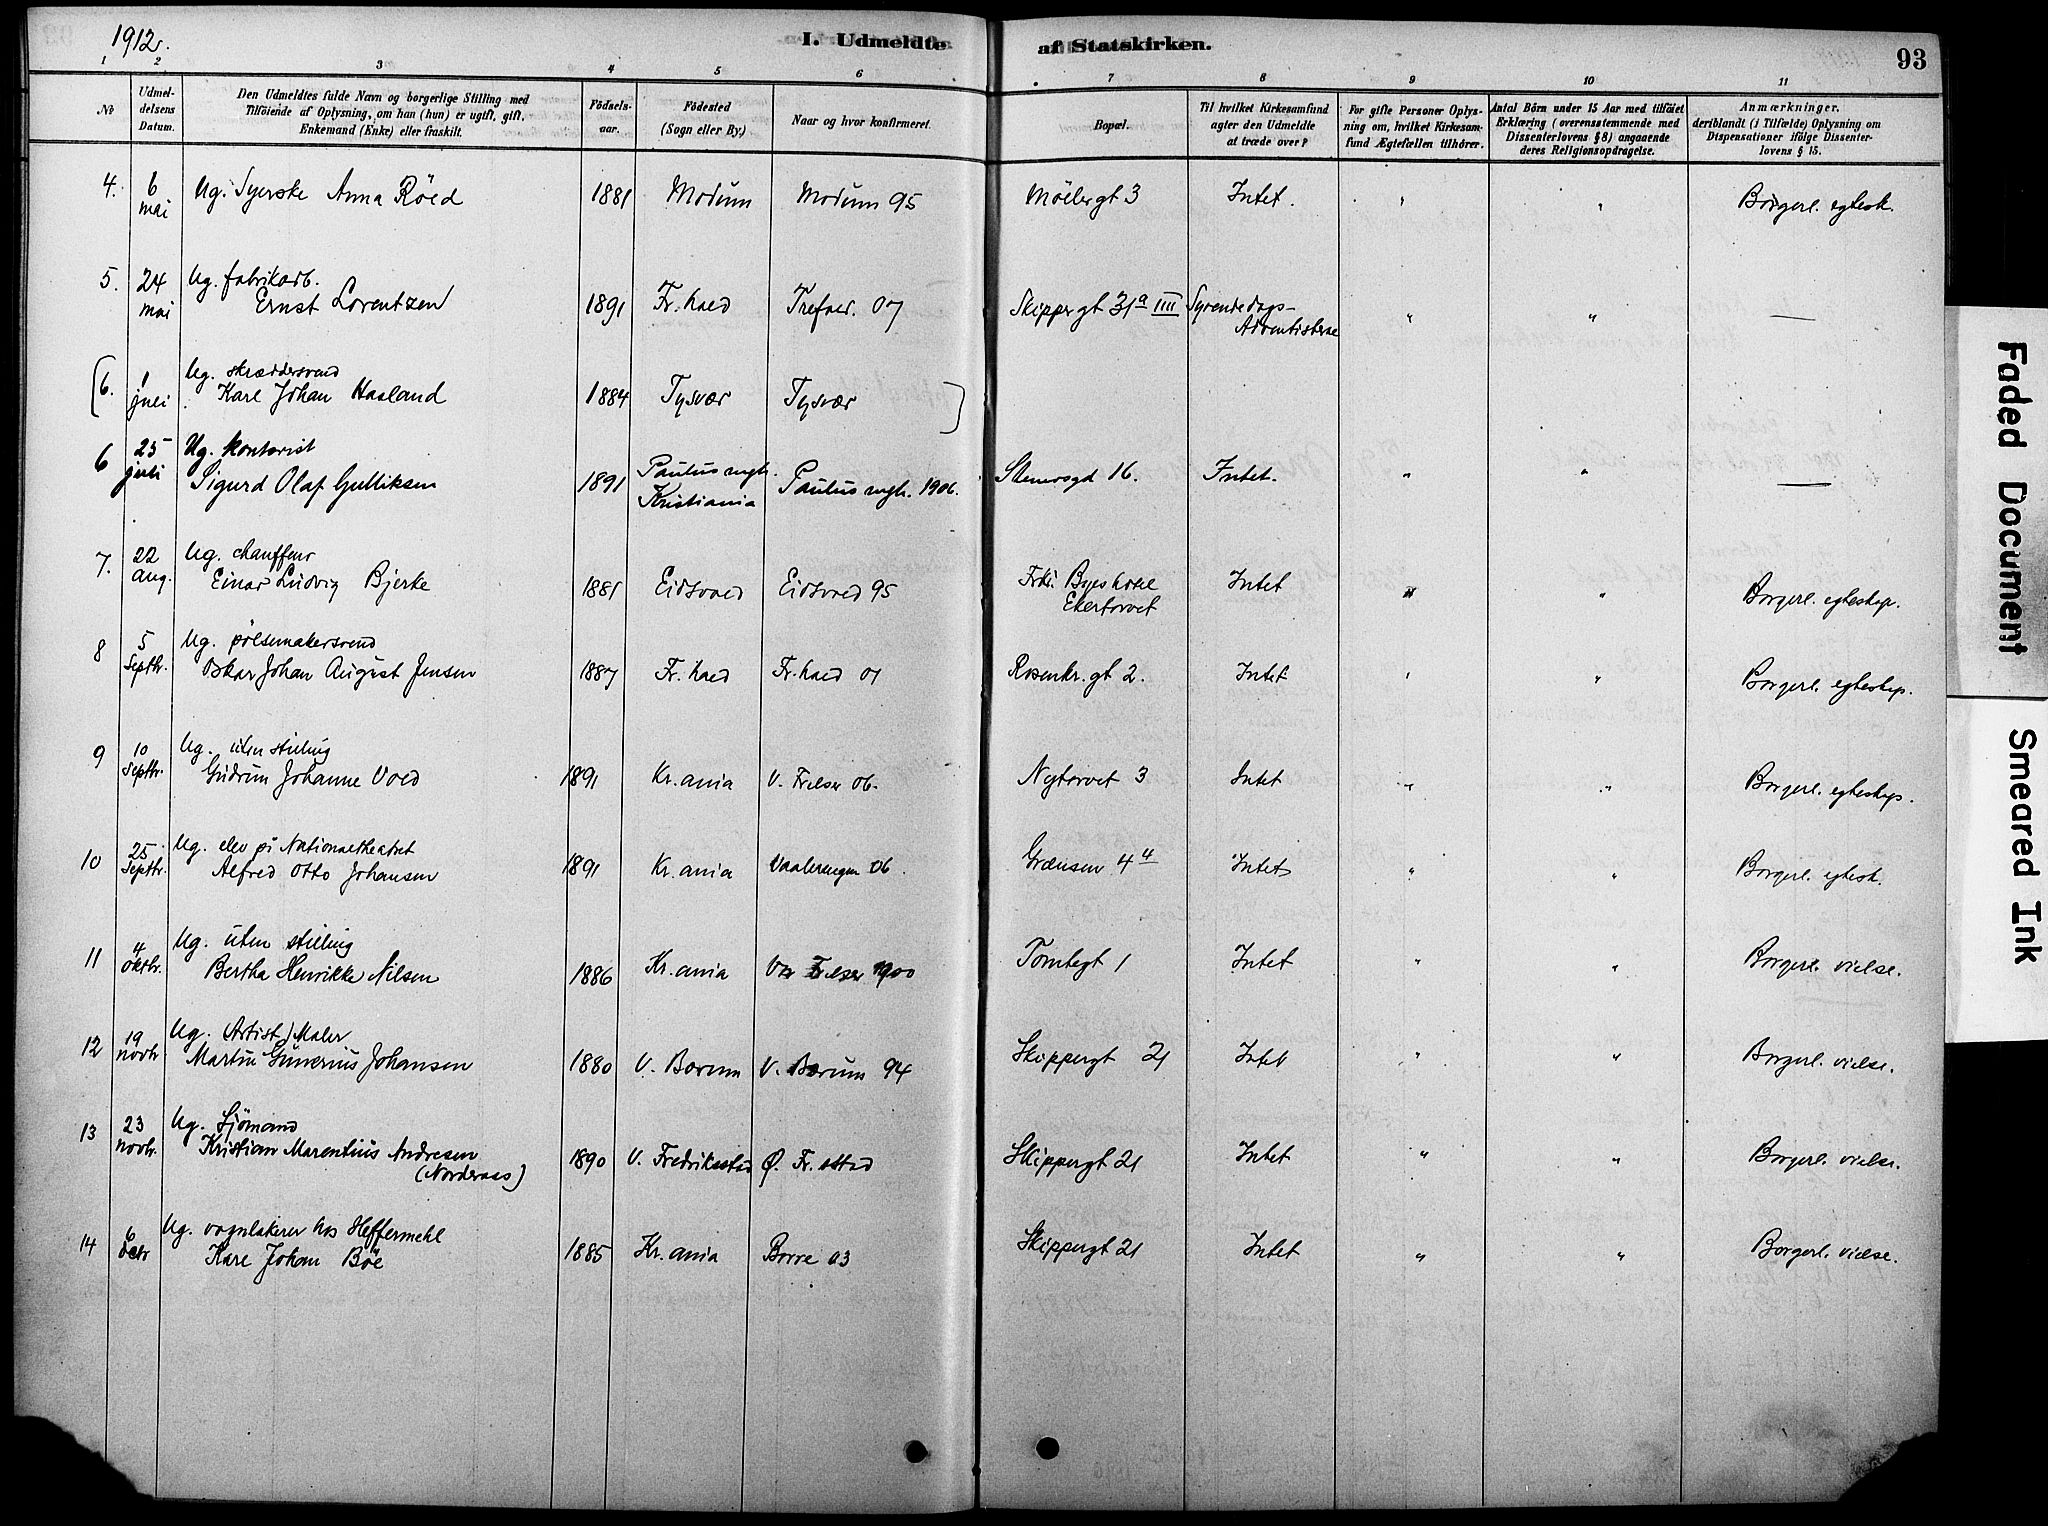 1912.
I. Udmeldte af Statskirken.
93
1 2 3 4 5 6 7 8 9 10 11
No
Udmel-
delsens
Datum.
Den Udmeldtes fulde Navn og borgerlige Stilling med
Tilföiende af Oplysning, om han (hun) er ugift, gift,
Enkemand (Enke) eller fraskilt.
Födsels-
aar.
Födested
(Sogn eller By.)
Naar og hvor konfirmeret.
Bopæl.
Til hvilket Kirkesamfund
agter den Udmeldte
at træde over?
For gifte Personer Oplys-
ning om, hvilket Kirkesam-
fund Ægtefællen tilhörer.
Antal Börn under 15 Aar med tilföiet
Erklæring (overensstemmende med
Dissenterlovens § 8) angaaende
deres Religionsopdragelse.
Anmærkninger,
deriblandt (i Tilfælde) Oplysning om
Dispensationer ifölge Dissenter-
lovens § 15.
4. 6 mai Ug. Syerske Anna Röed 1881 Modum Modum 95 Möllergt 3 Intet. " " Borgerl. egtesk.
5. 24 mai Ug. fabrikarb.
Ernst Lorentzen 1891 Fr.hald Trefold. 07 Skippergt 31a IIII Syvendedags-
Adventisterne " " —
(6. 1 juli Ug. skræddersvend
Karl Johan Hasland 1884 Tysvær Tysvær )
6 25 juli Ug. kontorist
Sigurd Olaf Gulliksen 1891 Paulus mgh.
Kristiania Paulus mgh. 1906. Stenersgd 16. Intet. " " —
7. 22 aug. Ug. chauffeur
Einar Ludvig Bjerke 1881 Eidsvold Eidsvold 95 Frk. Byes hotel
Egertorvet Intet " " Borgerl. egteskap.
8 5 Septbr. Ug. pölsemakersvend
Oskar Johan August Jensen 1887 Fr.hald Fr.hald 01 Rosenkr.gt 2. Intet " " Borgerl. egteskap.
9 10 Septbr. Ug. uten stilling
Gudrun Johanne Vold 1891 Kr.ania V. Frelser 06. Nytorvet 3 Intet " " Borgerl. egteskap.
10 25 Septbr. Ug. elev på Nationaltheatret
Alfred Otto Johansen 1891 Kr.ania Vaalerengen 06. Grænsen 4 4 Intet " " Borgerl. egtesk.
11 4 oktbr. Ug. uten stilling
Bertha Henrikke Nilsen 1886 Kr.ania Vor Frelser 1900 Tomtegt 1 Intet " " Borgerl. vielse.
12 19 novbr Ug. (Artist) Maler
Martin Gunerius Johansen 1880 V. Bærum V. Bærum 94 Skippergt 21 Intet " " Borgerl. vielse.
13 23 novbr. Ug. Sjömand
Kristian Marentius Andresen
(Norderaas) 1890 V. Fredrikstad Ø. Fr.stad Skippergt 21 Intet " " Borgerl. vielse.
14 6 decbr Ug. vognlakerer hos Heffermehl
Karl Johan Böe 1885 Kr.ania Borre 03 Skippergt 21 Intet " " Borgerl. vielse.
Faded Document
Smeared Ink